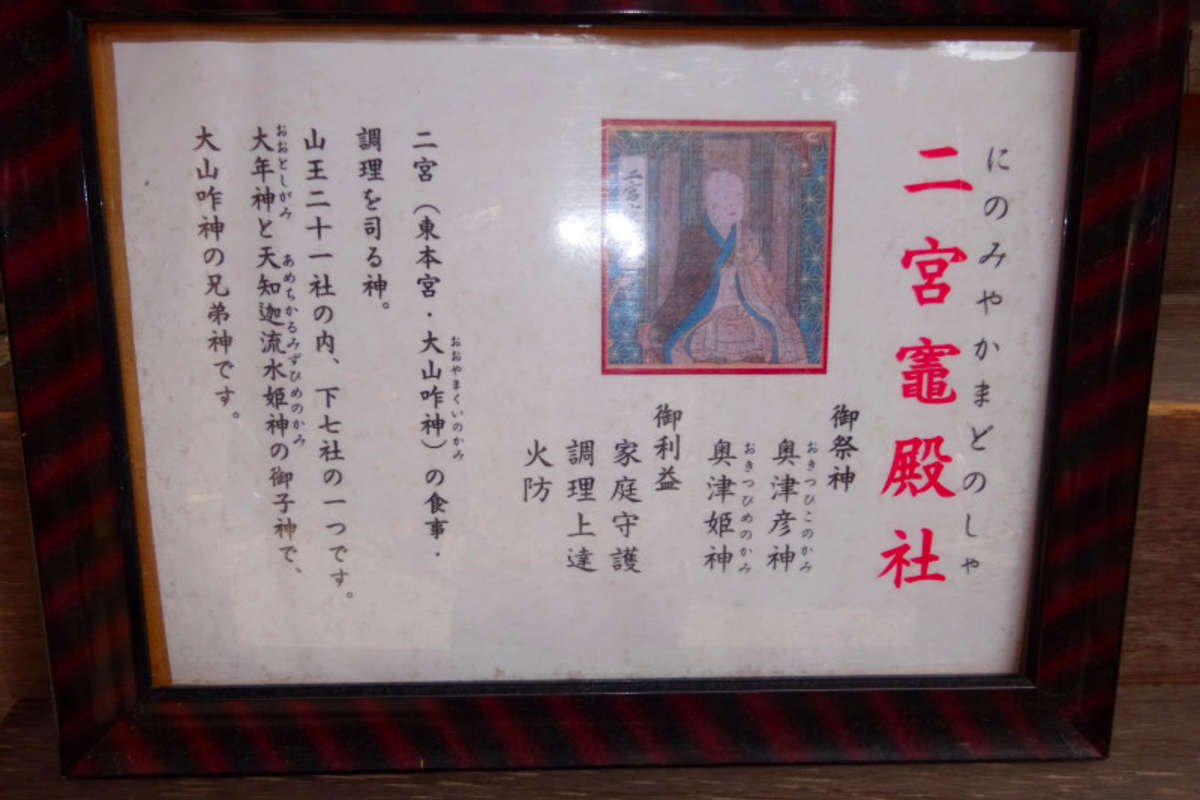 にのみやかまどのしゃ
二宮竈殿社
御祭神
おきつひこのかみ
奥津彦神
おきつひめのかみ
奥津姫神
御利益
家庭守護
調理上達
火防
二宮
おおやまくいのかみ
二宮（東本宮・大山咋神）の食事・
調理を司る神。
山王二十一社の内、下七社の一つです。
おおとしがみ　あめちかるみずひめのかみ
大年神と天知迦流水姫神の御子神で、
大山咋神の兄弟神です。